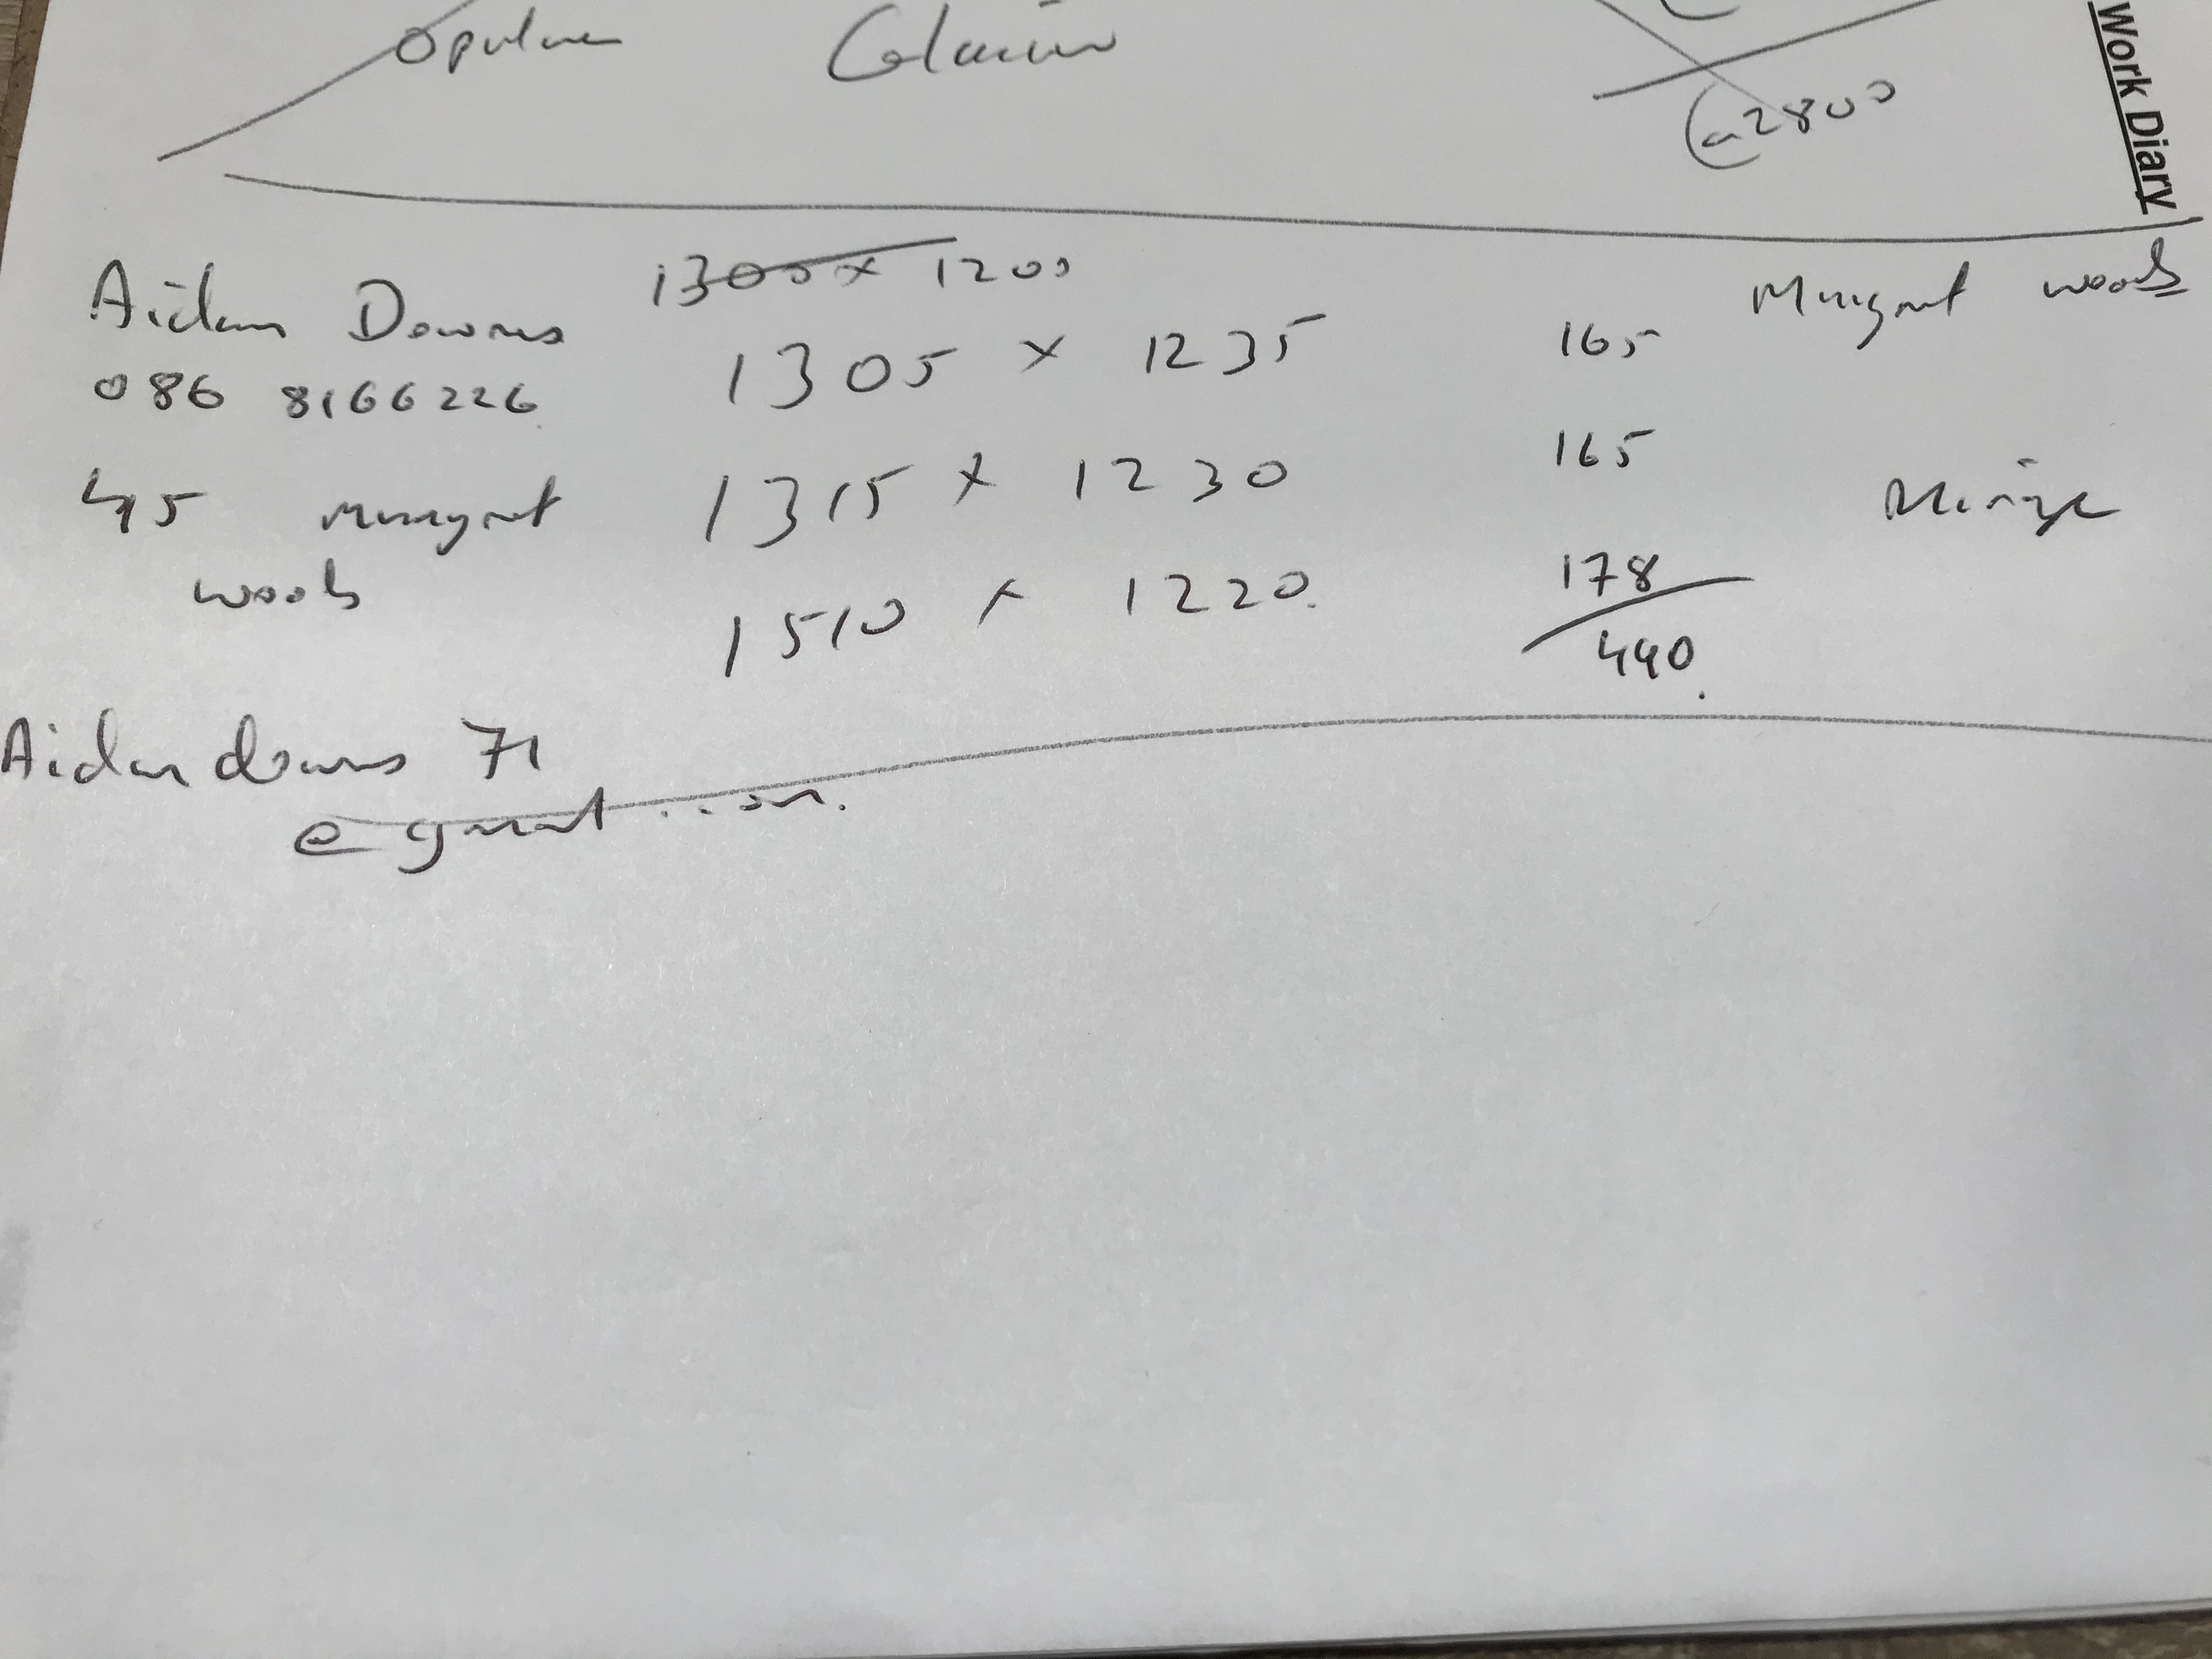 Work Diary
@2800
Aidan Downes
1300 x 1200
086 8166226
1305 x 1235
165
Mungret woods
45 mungret
woods
1315 x 1230
165
1510 x 1220
178
440
Aidandownes 71
@ gmail.com